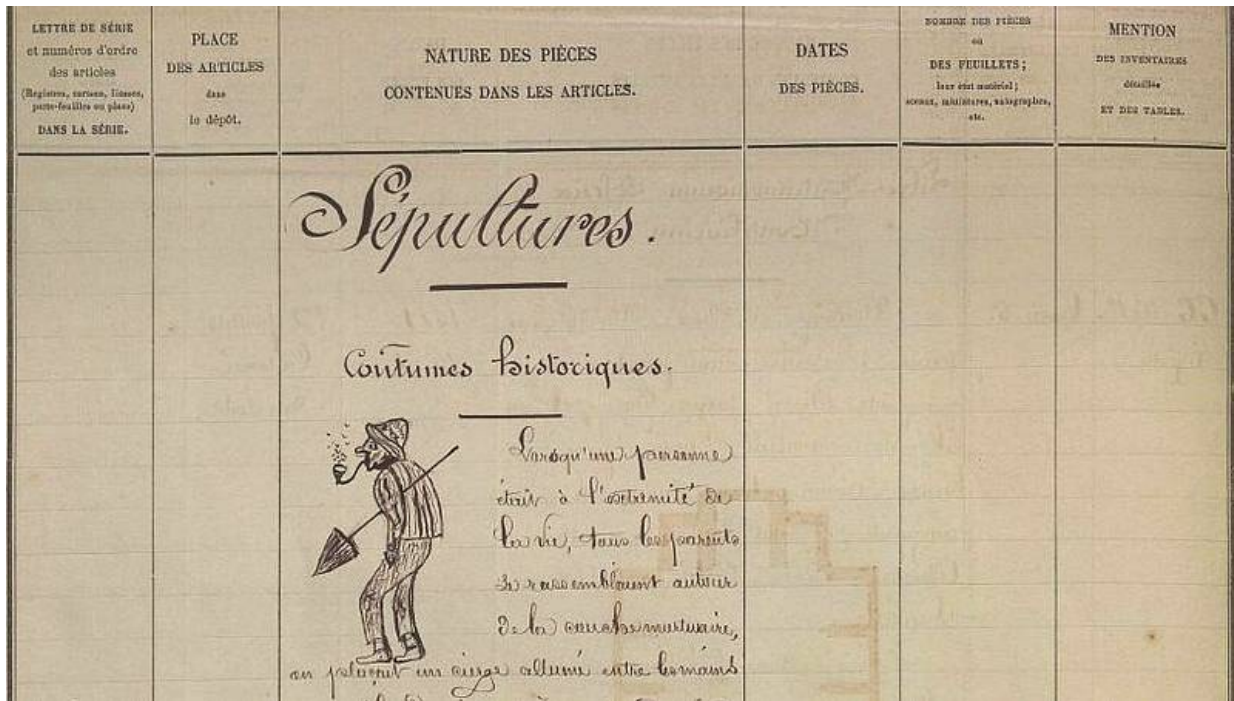 LETTRE DE SÉRIE
et numéros d'ordre
des articles
(Registres, cartons, liasses,
porte-feuilles ou place)
DANS LA SÉRIE.
PLACE
DES ARTICLES
dans
le dépôt.
NATURE DES PIÈCES
CONTENUES DANS LES ARTICLES.
DATES
DES PIÈCES.
NOMBRE DES PIÈCES
ou
DES FEUILLETS;
leur état matériel;
sceaux, miniatures, autographes,
etc.
MENTION
DES INVENTAIRES
détaillés
ET DES TABLES.
Sépultures.
Coutumes historiques.
Lorsqu'une personne
était à l'extremité de
la vie, tous les parents
se rassemblaient autour
de la couche mortuaire,
on plaçait un cierge allumé entre les mains